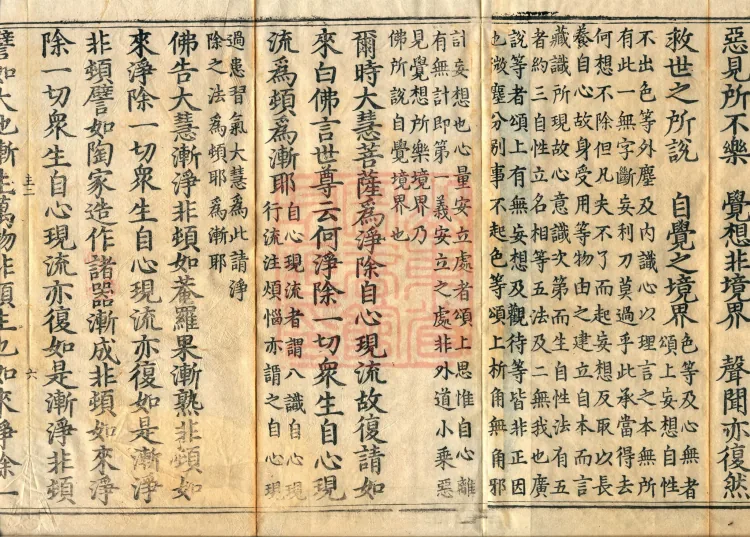 惡見所不樂　覺想非境界　聲聞亦復然
救世之所說　自覺之境界
色等及心無者頌上妄想自性
不出色等外塵及內識心以理言之本無所
有此一無字斷妄利刀莫過乎此承當得去
何想不除但凡夫不了而起妄想反取以長
養自心故身受用等物由之建立自本而言
藏識所現故心意識次第而生自性法有五
者約三自性立名相等五法及二無我也廣
說等者頌上有無妄想及觀待等皆非正因
也微塵分別事不起色等頌上析角無角邪
計妄想也心量安立處者頌上思惟自心離
有無計即第一義安立之處非外道小乘惡
見覺想所樂境界乃
佛所說自覺境界也
爾時大慧菩薩爲淨除自心現流故復請如
來白佛言世尊云何淨除一切衆生自心現
流爲頓爲漸耶
自心現流者謂八識自心現
行流注煩惱亦謂之自心現
過患習氣大慧爲此請淨
除之法爲頓耶爲漸耶
佛告大慧漸淨非頓如菴羅果漸熟非頓如
來淨除一切衆生自心現流亦復如是漸淨
非頓譬如陶家造作諸器漸成非頓如來淨
除一切衆生自心現流亦復如是漸淨非頓
主二　六
譬如大地漸生萬物非頓生也如來淨除一